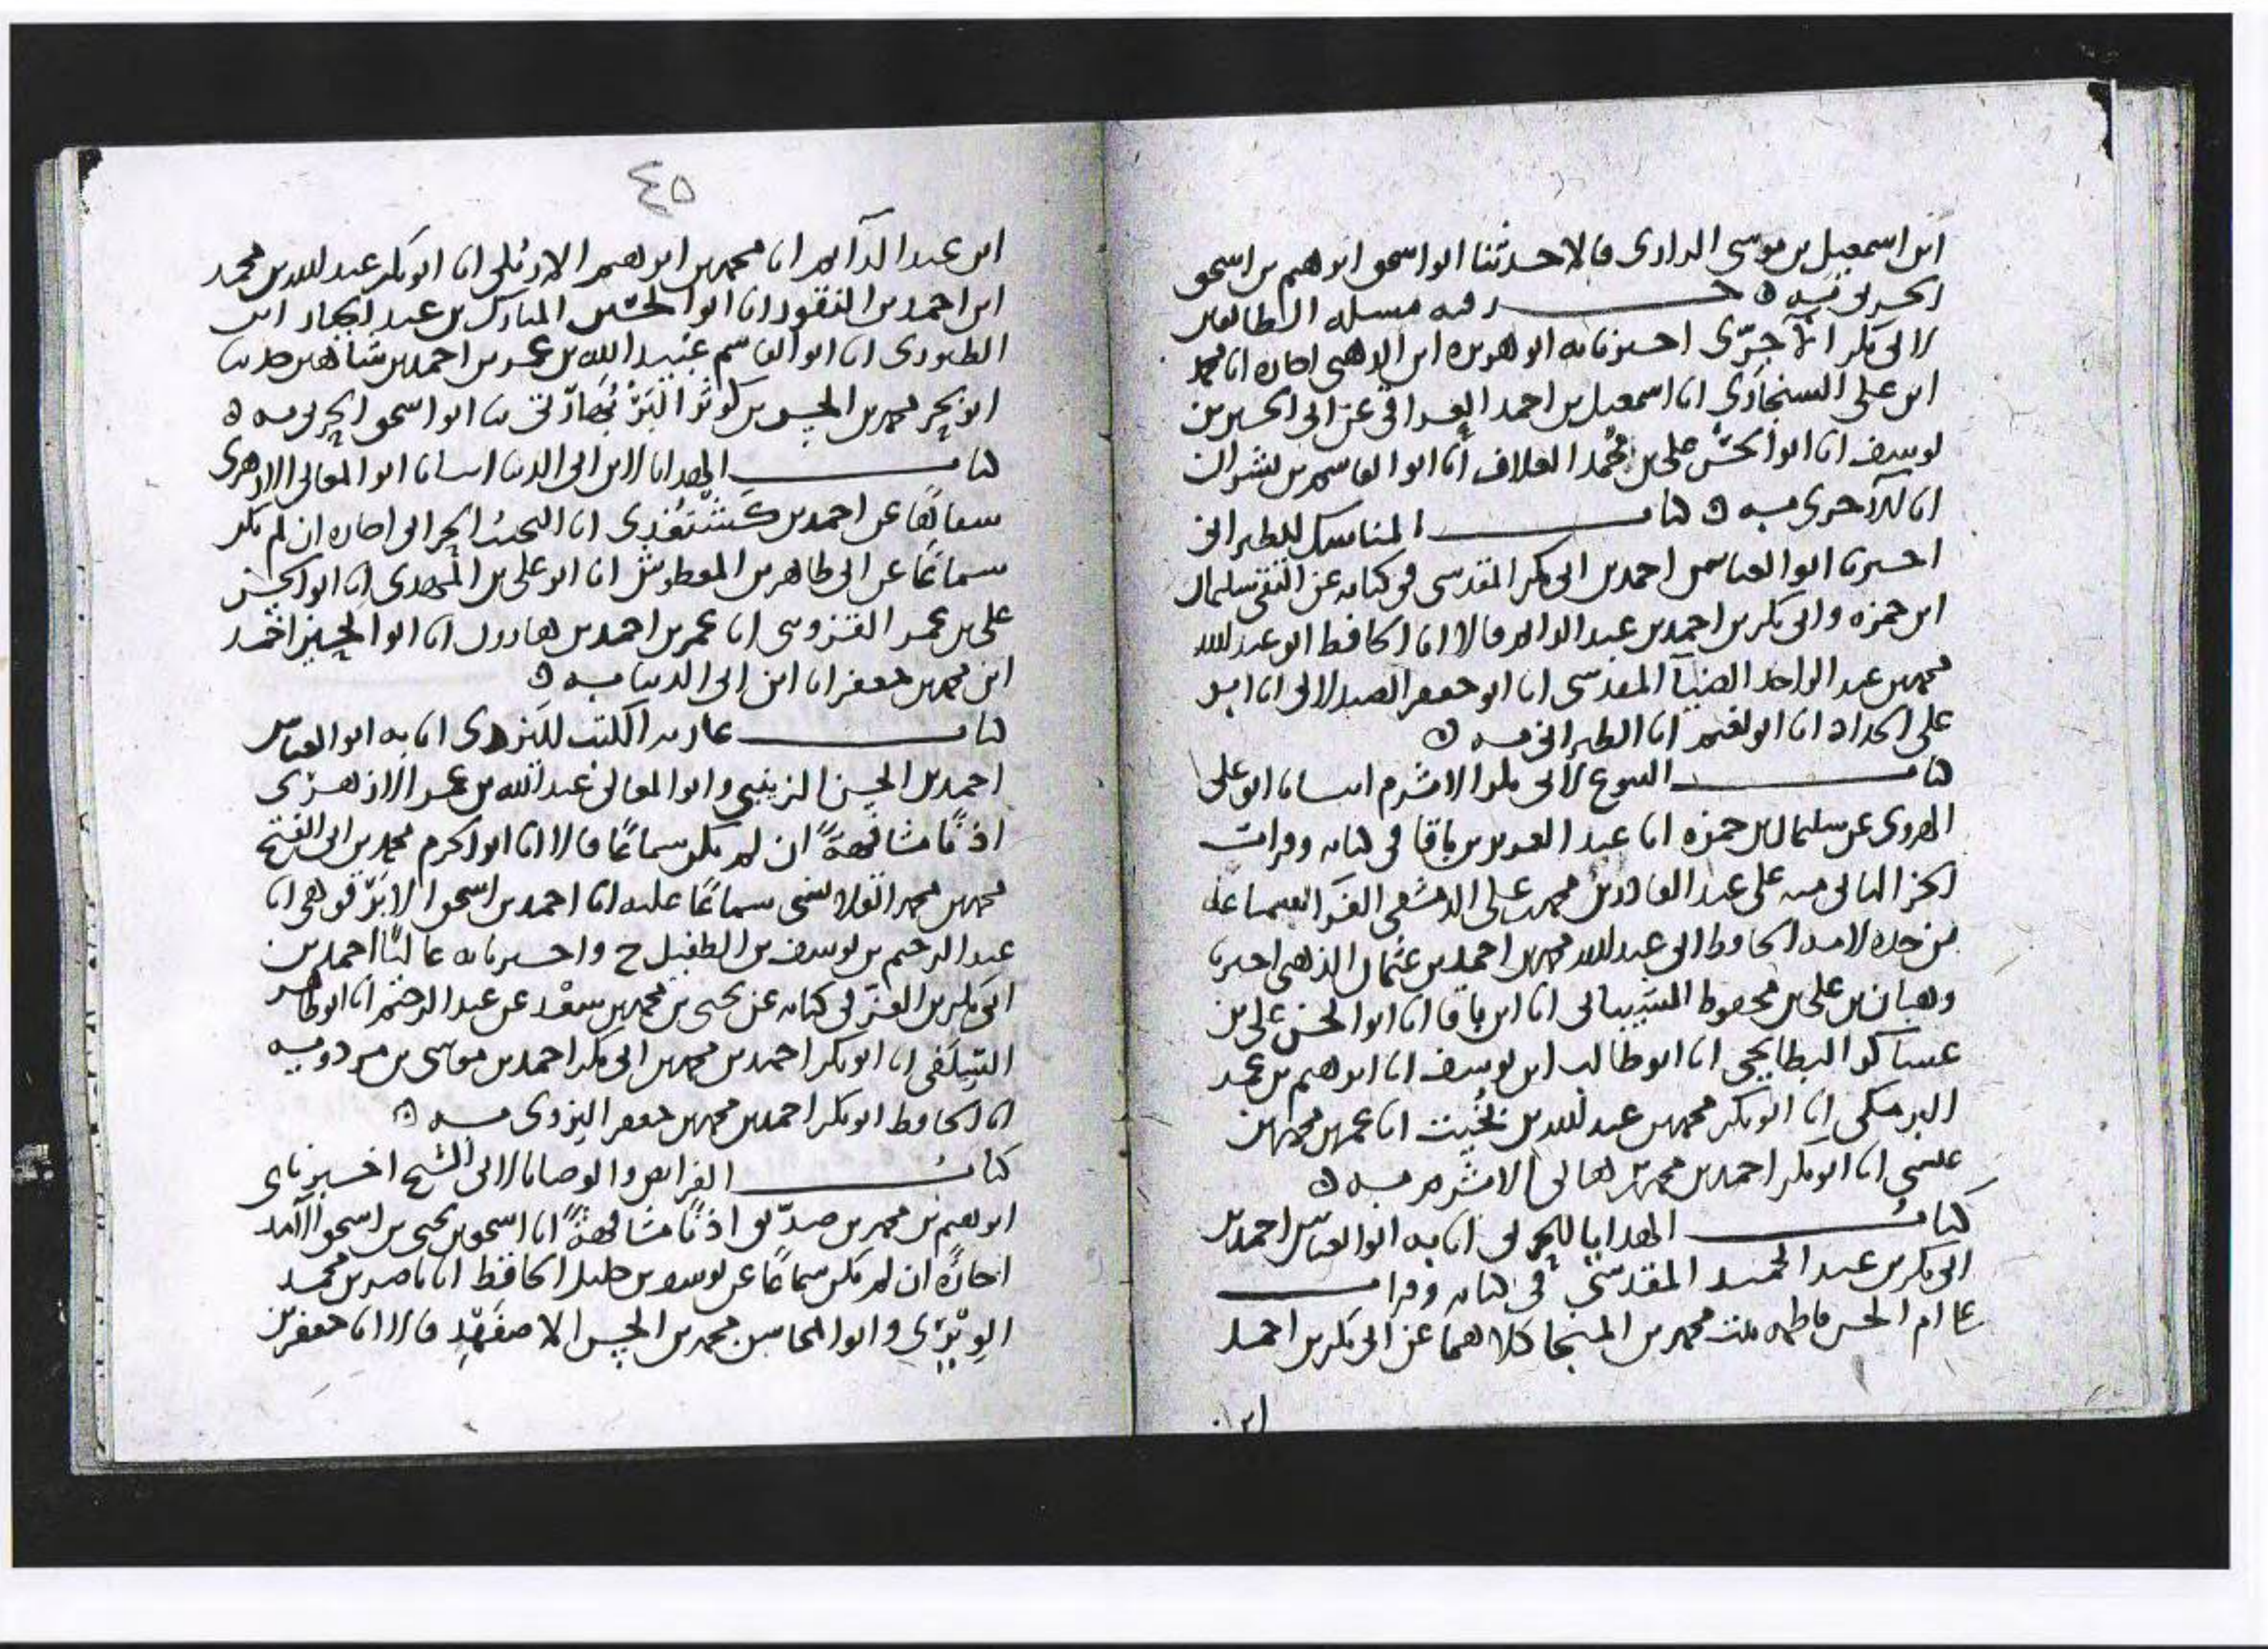 ابن اسمعيل بن موسى الداری قالا حدثنا ابو اسحق ابراهيم بن اسحق
الحربی به ه جــزء فيه مسلة الطائفين
لابی بكر الآجرّی اخبرنا به ابو هريرة ابن الذهبی اجازة انا محمد
ابن علی السنجاری انا اسمعيل بن احمد العراقی عن ابی الحسين بن
يوسف انا ابو الحسن علی بن محمد العلاف انا ابو القاسم بن بشران
انا الآجری به ه كتاب المناسك للطبرانی
اخبرنا ابو العباس احمد بن ابی بكر المقدسی فی كتابه عن التقی سليمان
ابن حمزه وابی بكر بن احمد بن عبد الدايم قالا انا الحافظ ابو عبد الله
محمد بن عبد الواحد الضيآ المقدسی انا ابو جعفر الصيدلانی انا ابو
علی الحداد انا ابو نعيم انا الطبرانی به ه
كتاب البيوع لابی بكر الاثرم انبانا ابو علی
المهدوی عن سليمان بن حمزه انا عبد العزيز بن باقا فی كتابه وقرات
الجز الثانی منه علی عبد القادر بن محمد بن علی الدمشقی الفرا بسماعه
من جده لامه الحافظ ابی عبد الله محمد بن احمد بن عثمان الذهبی اخبرنا
وهبان بن علی بن محفوظ الشيبانی انا ابن باقا انا ابو الحسن علی بن
عساكر البطايحی انا ابو طالب ابن يوسف انا ابراهيم بن عمر
البرمكی انا ابو بكر محمد بن عبد الله بن بُخَيت انا عمر بن محمد بن
عيسی انا ابو بكر احمد بن محمد بن هانی الاثرم به ه
كتاب الهدايا للحربی انا به ابو العباس احمد بن
ابی بكر بن عبد الحميد المقدسی فی كتابه وقرات
علی ام الحسن فاطمه بنت محمد بن المنجا كلاهما عن ابی بكر بن احمد
ابن
٤٥
ابن عبد الدآيم انا محمد بن ابراهيم الاربلی انا ابو بكر عبد الله بن محمد
ابن احمد بن النقور انا ابو الحسين المبارك بن عبد الجبار ابن
الطيوری انا ابو القاسم عبيد الله بن عمر بن احمد بن شاهين حدثنا
ابو بحر محمد بن الحسن بن كوثر البَرْبَهَارّی ثنا ابو اسحق الحربی به ه
كتاب الهدايا لابن ابی الدنيا انبانا ابو المعالی الازهری
سماعًا عن احمد بن كَشْتُغْدِی انا النجيب الحرانی اجازه ان لم يكن
سماعًا عن ابی طاهر بن المعطوش انا ابو علی بن المهدی انا ابو الحسن
علی بن عمر القزوينی انا عمر بن احمد بن هارون انا ابو الحسين احمد
ابن محمد بن جعفر انا ابن ابی الدنيا به ه
كتاب عارية الكتب لليزدی انا به ابو العباس
احمد بن الحسن الزينبی وابو المعالی عبد الله بن عمر الازهری
اذنًا مشافهةً ان لم يكن سماعًا قالا انا ابو الحرم محمد بن ابی الفتح
محمد بن محمد القلانسی سماعًا عليه انا احمد بن اسحق الابَرْقوهی انا
عبد الرحيم بن يوسف بن الطفيل ح واخبرنا به عاليًا احمد بن
ابی بكر بن العز فی كتابه عن يحيی بن محمد بن سعْد عن عبد الرحيم انا ابو طاهر
السِّلَفی انا ابو بكر احمد بن محمد بن ابی بكر احمد بن موسی بن مردويه
انا الحافظ ابو بكر احمد بن محمد بن جعفر اليزدی به ه
كتاب الفرايض والوصايا لابی الشيخ اخبرنا
ابراهيم بن محمد بن صدّيق اذنًا مشافهةً انا اسحق بن يحيی بن اسحق الآمدی
اجازةً ان لم يكن سماعًا عن يوسف بن خليل الحافظ انا ناصر بن محمد
الوِيْرَی وابو المحاسن محمد بن الحسن الاصفَهْبد قالا انا جعفر بن